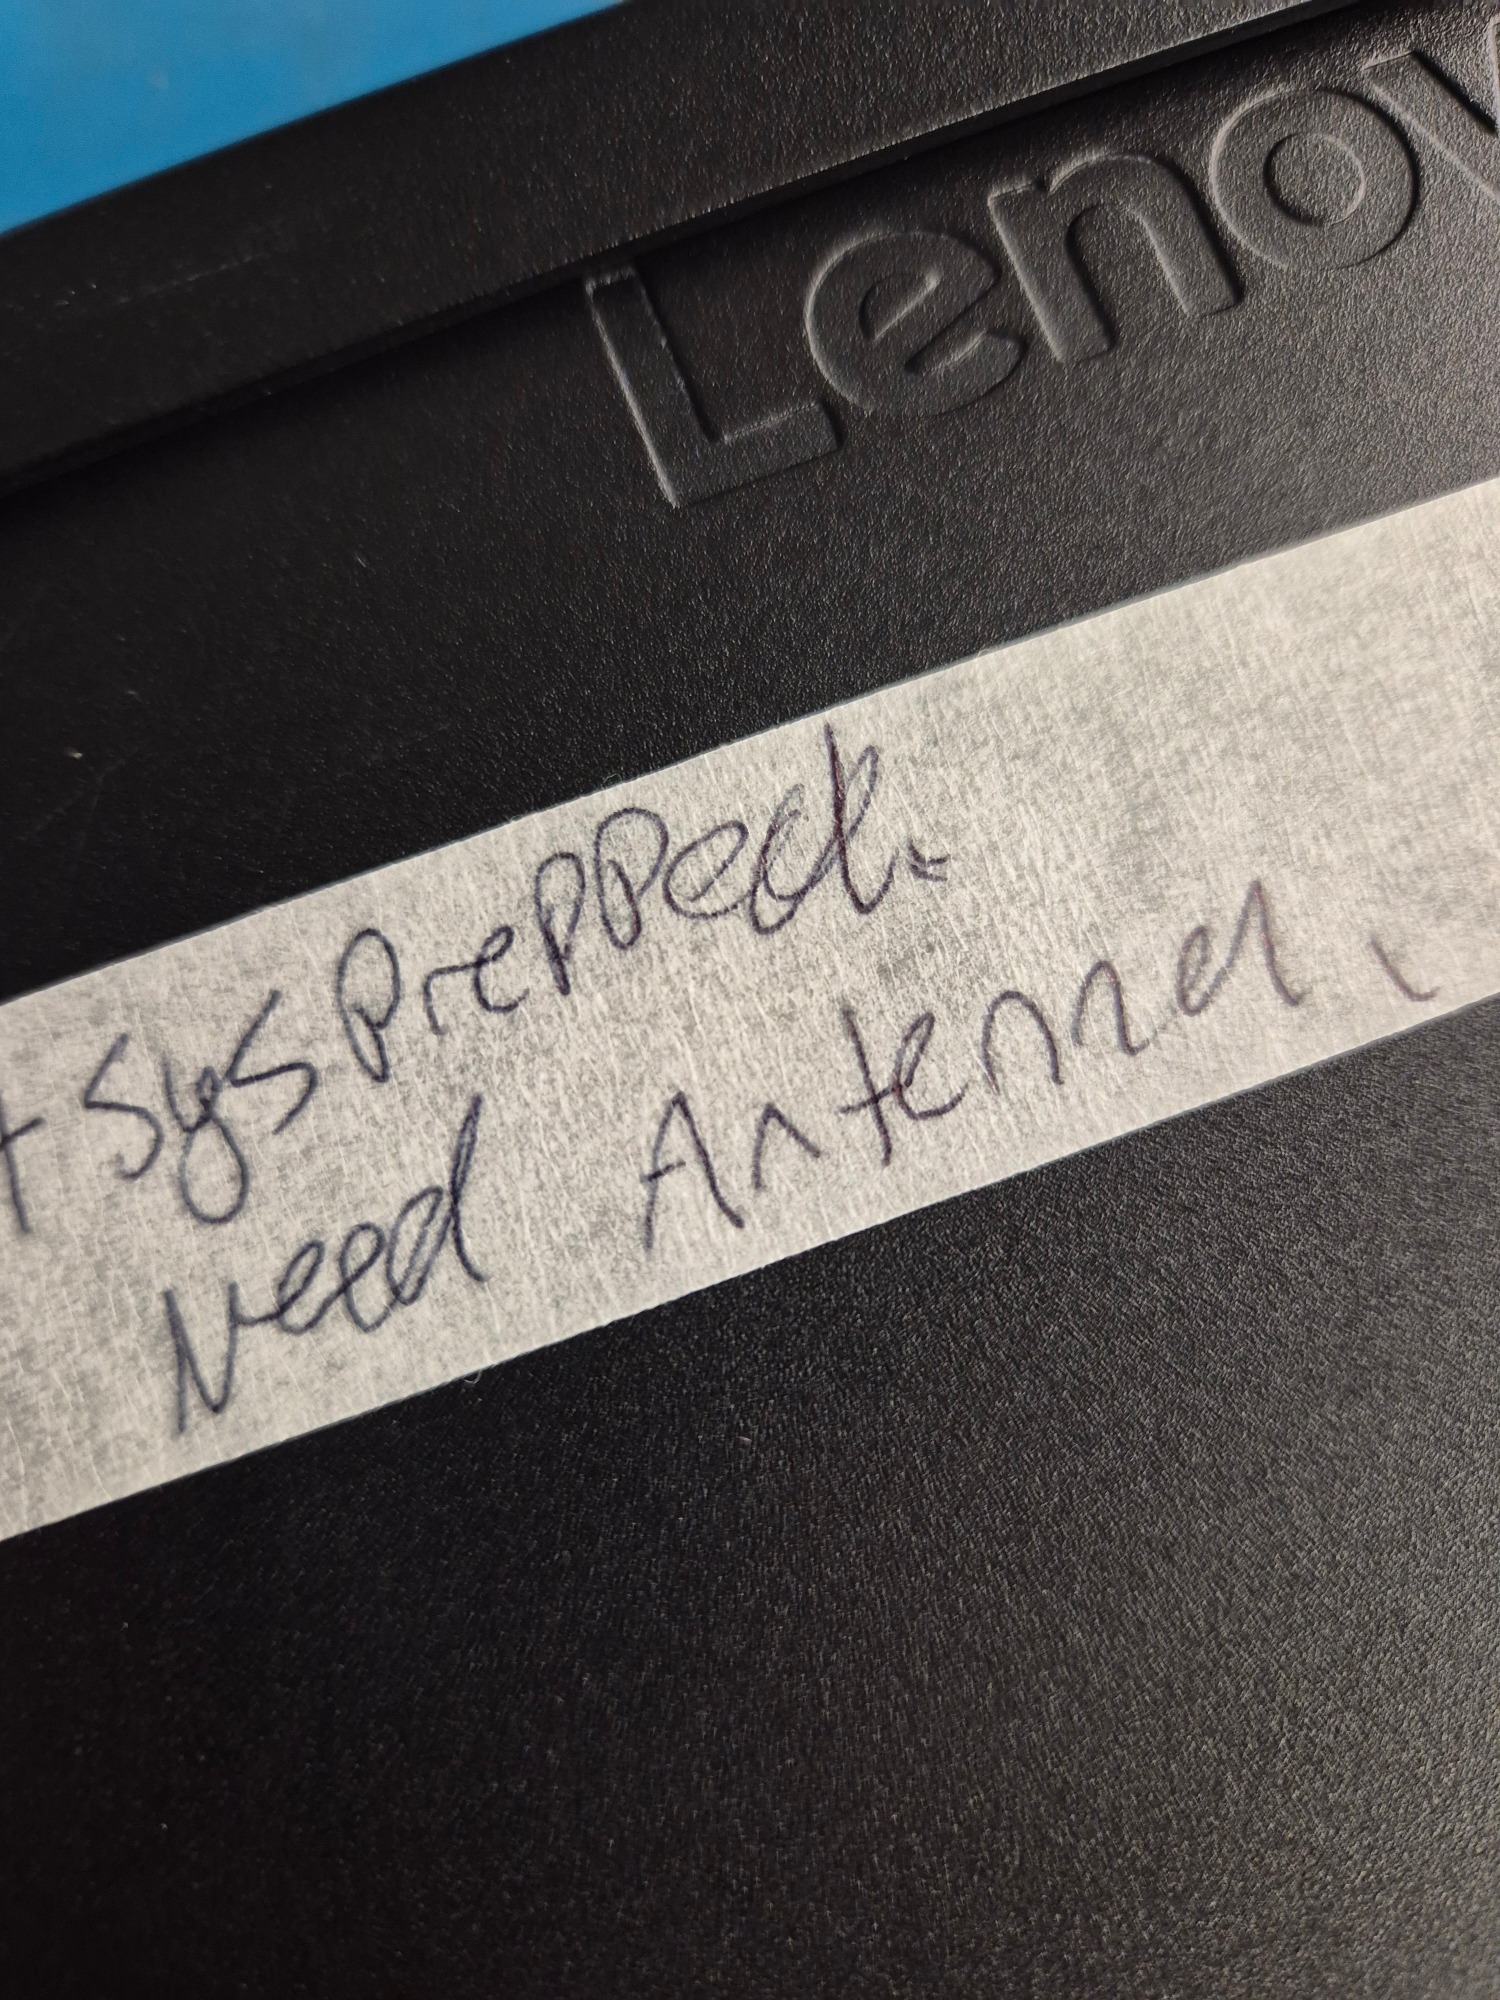 Lenov
+ SysPrepped.
Need Antenna.